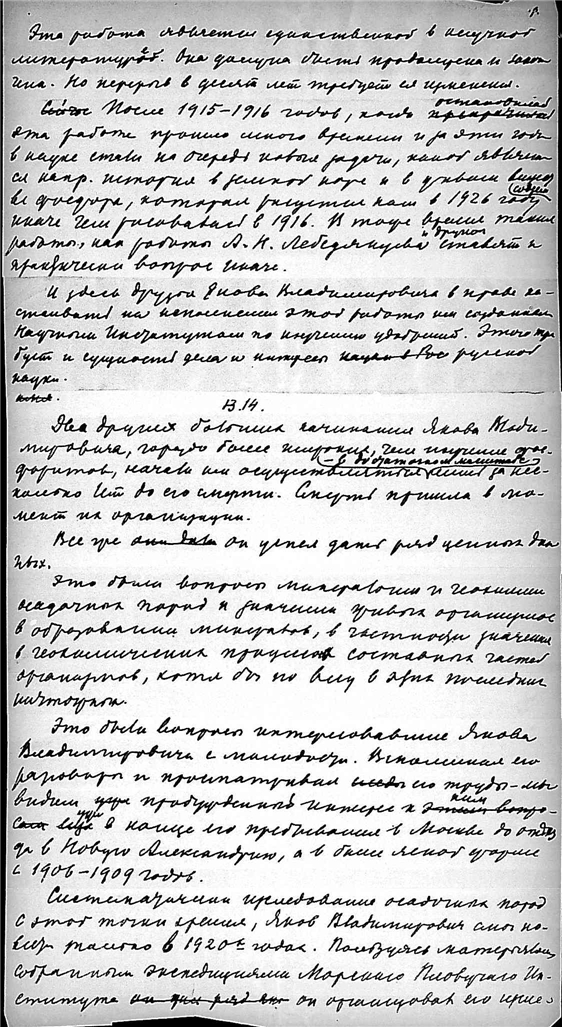 Эта работа является единственной в научной
литературе. Она должна быть продолжена и закон
чена. Но перерыв в десять лет требует ея изменения.
После 1915–1916 годов, когда остановилась
эта работа прошло много времени и за эти годы
в науке стали на очередь новые задачи, какой являет
ся напр. история в земной коре и в живом веществе
фосфора, которая рисуется нам в 1926 году совсем
иначе чем рисовалась в 1916. В то же время такия
работы, как работы А. Н. Лебедянцева и других ставят и
практически вопрос иначе.
И здесь друзья Якова Владимировича в праве на-
стаивать на исполнении этой работы им созданным
Научным Институтом по изучению удобрений. Этого тре
бует и сущность дела и интересы русской
науки.
13.14.
Два других больших начинания Якова Влади-
мировича, гораздо более широких, чем изучение фос-
форитов, начали им осуществляться в достаточном масштабе лишь за нес-
колько лет до его смерти. Смерть пришла в мо-
мент их организации.
Все же он успел дать ряд ценных дан
ных.
Это были вопросы минералогии и геохимии
осадочных пород и значения живых организмов
в образовании минералов, в частности значения
в геохимических процессах составных частей
организмов, хотя бы по весу в этих последних
ничтожных.
Это были вопросы интересовавшие Якова
Владимировича с молодости. Вспоминая его
разговоры и просматривая его труды – мы
видим пробужденный интерес к ним
уже в конце его пребывания в Москве до отъез
да в Новую Александрию, а в более ясной форме
с 1906–1909 годов.
Систематически исследование осадочных пород
с этой точки зрения, Яков Владимирович смог по-
вести только в 1920х годах. Пользуясь материалами
собранными экспедициями Морского Пловучаго Ин-
ститута он организовал его